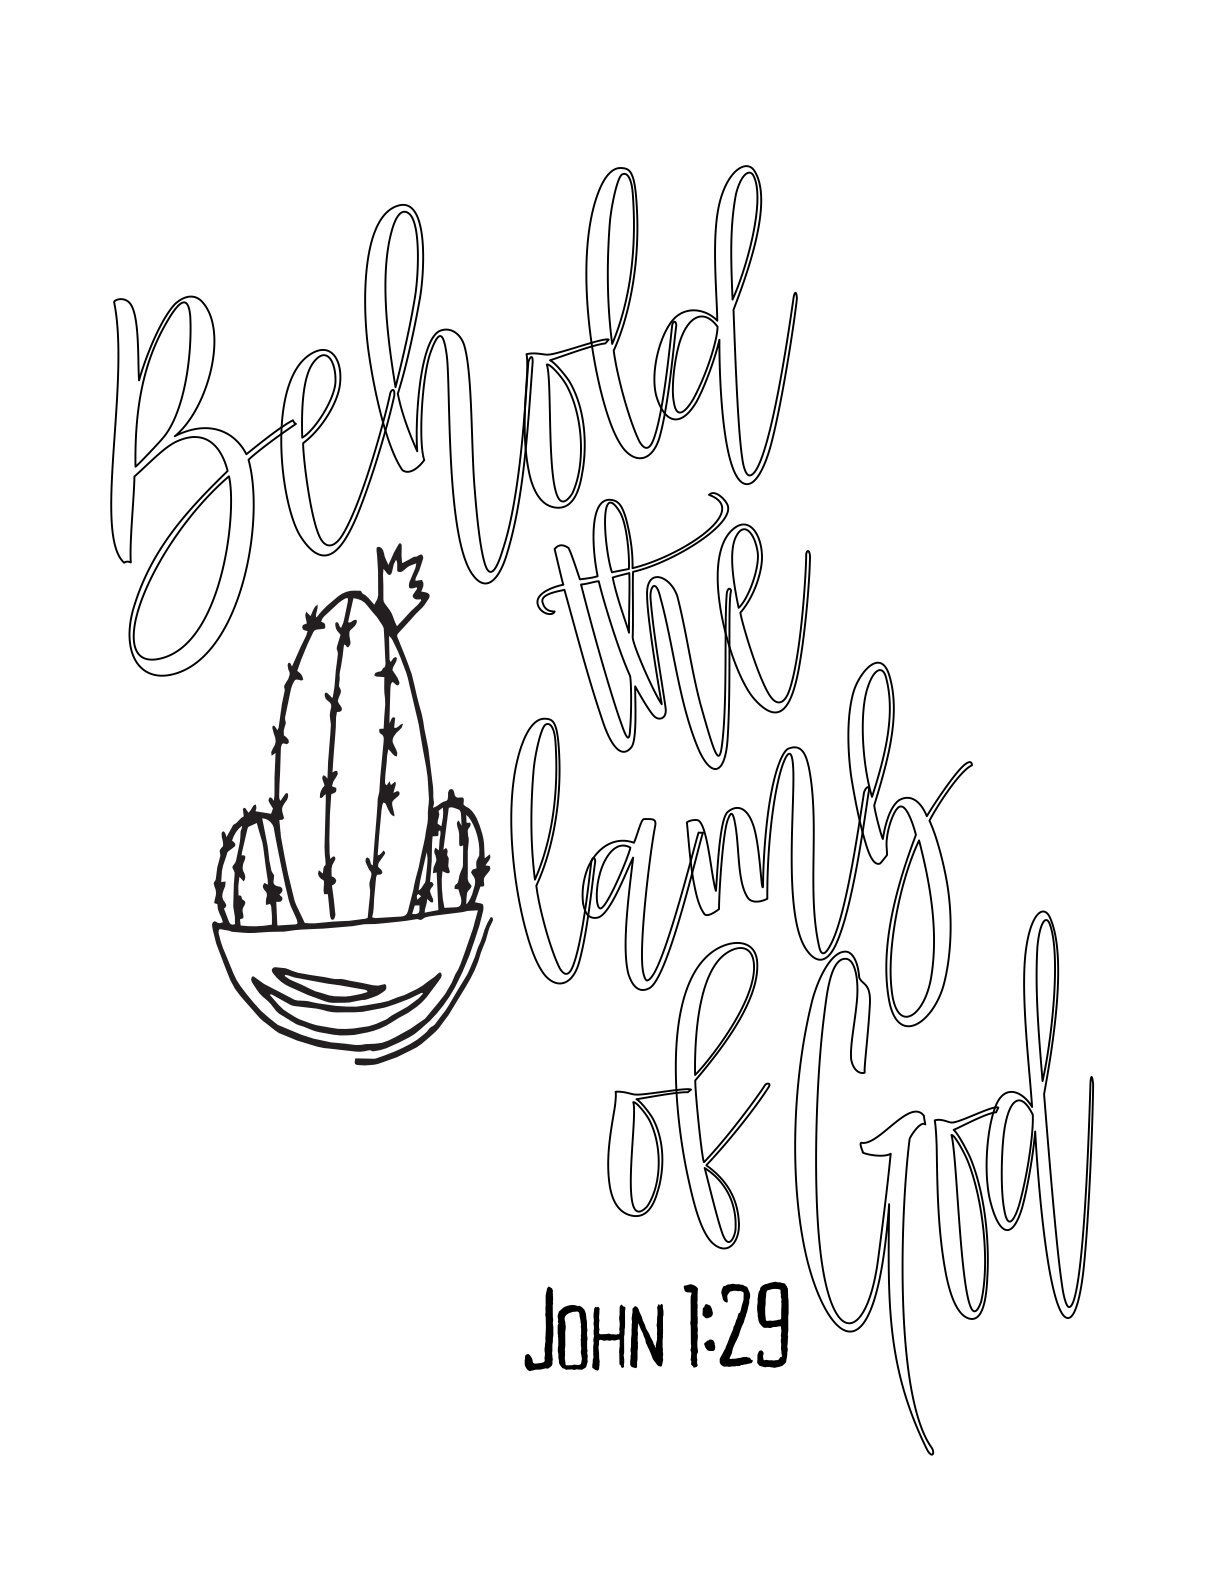 Behold
the
lamb
of God
John 1:29